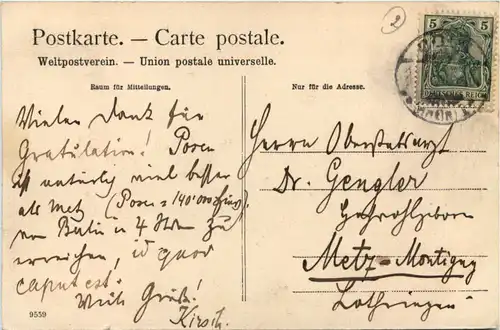 Postkarte. — Carte postale.
Weltpostverein. — Union postale universelle.
Raum für Mitteilungen.
Nur für die Adresse.
5 5
DEUTSCHES REICH
2
Vielen Dank für
Gratulation! Posen
ist natürlich viel besser
als Metz (Posen = 140'000
von Berlin in 4 Stden zu
erreichen, id quod
caput est.
Viele Grüße!
Kirsch.
Herrn Oberstabsarzt
Dr. Gengler
Metz-Montigny
Lothringen
9559